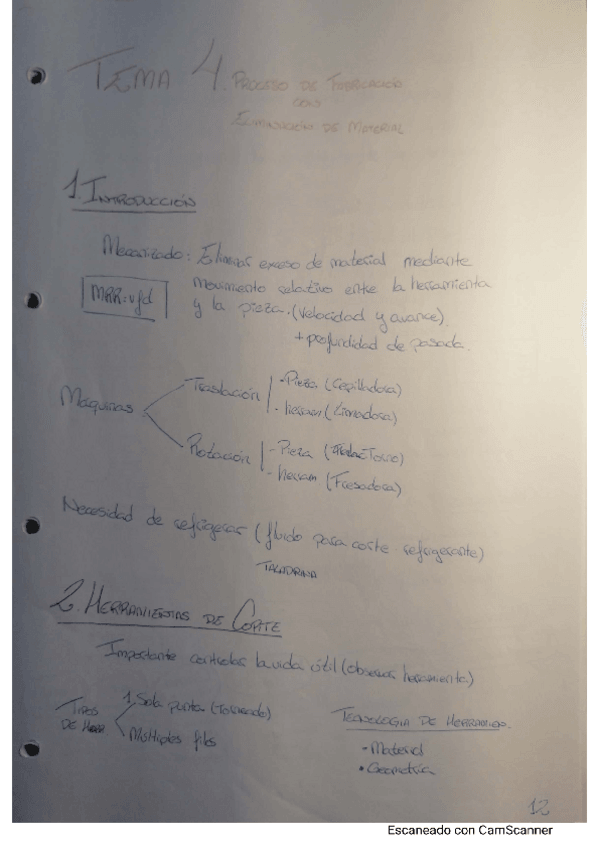 TEMA 4. PROCESO DE FABRICACIÓN
CON
ELIMINACIÓN DE MATERIAL
1. INTRODUCCIÓN
Mecanizado: Eliminar exceso de material mediante
MRR=vfd
movimiento relativo entre la herramienta
y la pieza. (velocidad y avance).
+ profundidad de pasada.
Máquinas
Traslación
- Pieza (Cepilladora)
- herram (Limadora)
Rotación
- Pieza (Torno)
- herram (Fresadora)
Necesidad de refrigerar (fluido para corte refrigerante)
TALADRINA
2. HERRAMIENTAS DE CORTE
Importante controlar la vida útil (observar herramienta)
TIPOS
DE HERR
1. Sola punta (Torneado)
Múltiples filos
TECNOLOGIA DE HERRAMIEN.
- Material
• Geometría
12
Escaneado con CamScanner